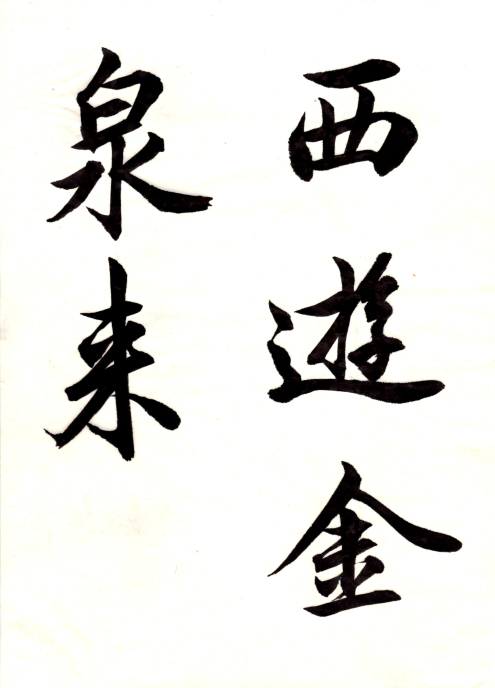 西遊金
泉来